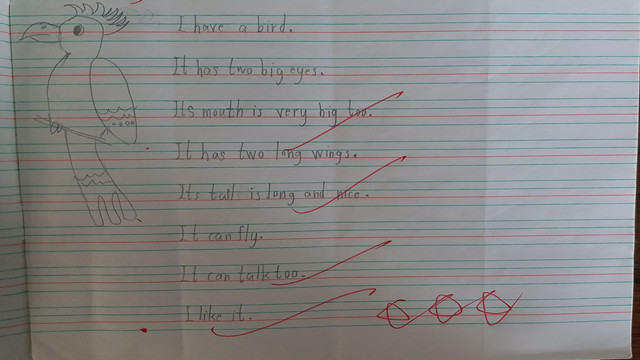 I have a bird.
It has two big eyes.
Its mouth is very big too.
It has two long wings.
Its tail is long and nice.
It can fly.
It can talk too.
I like it.